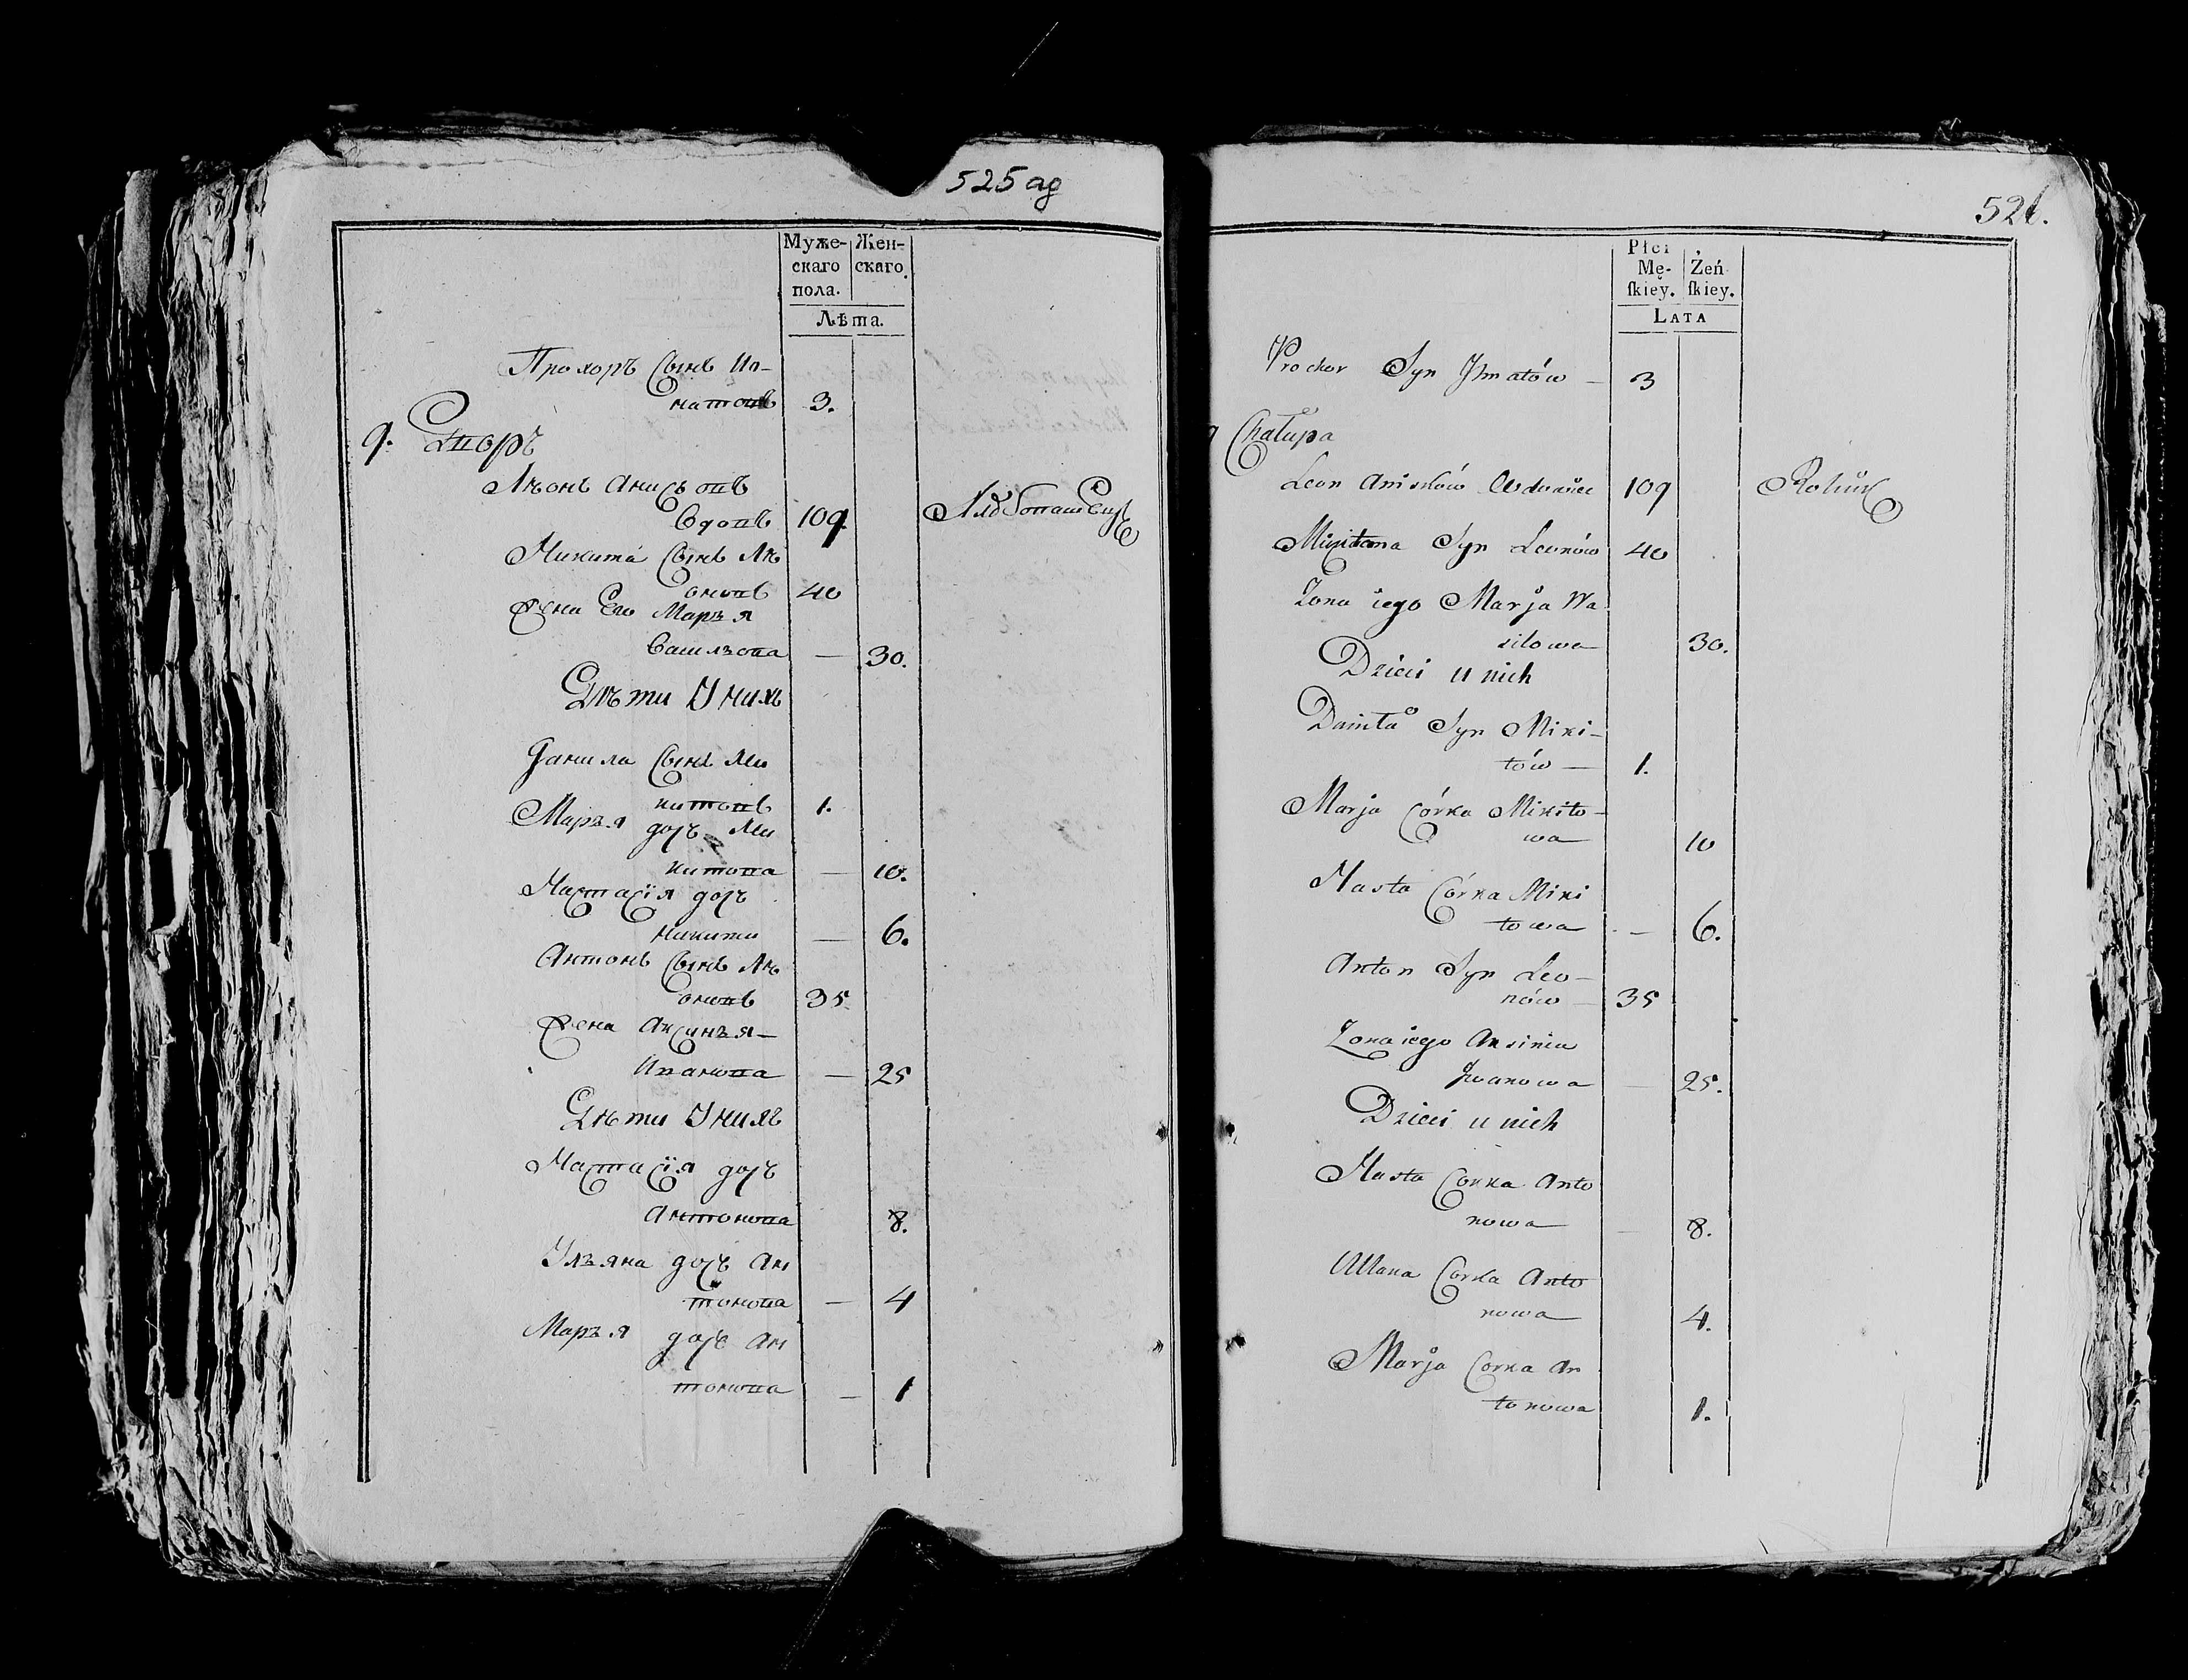 525 ag
Муже-
скаго
пола.
Жен-
скаго.
Лѣта.
Прохоръ Сынъ Иг-
натовъ 3.
9. Дворъ
Лѣонъ Анисковъ
Вдовъ 109. Хлѣбопашецъ
Микита Сынъ Лѣ
оновъ 40
Жена Его Марья
Василъова — 30.
Дѣти У нихъ
Данила Сынъ Ми
китовъ 1.
Марья дочъ Ми
китова — 10.
Настасія дочъ
Микити — 6.
Антонъ Сынъ Лѣ
оновъ 35.
Жена Аксинья —
Иванова — 25
Дѣти У нихъ
Настасія дочъ
Антонова 8.
Ульяна дочъ Ан
тонова — 4
Марья дочъ Ан
тонова — 1
526.
Płci
Mę-
ſkiey.
Żeń
ſkiey.
LATA
Prochor Syn Jhnatów — 3
9 Chałupa
Leon Aniskow Wdowiec 109 Rolnik
Syn Leonów 40
Zona iego Marja Wa
silowa 30.
Dzieci u nich
Daniła Syn Miki-
tów — 1.
Marja Córka Mikito-
wa 10
Nasta Córka Miki
towa — 6.
Anton Syn Leo-
nów — 35
Zona iego Aksinia
Jwanowa — 25.
Dzieci u nich
Nasta Corka Anto
nowa — 8.
Ullana Corka Anto
nowa 4.
Marja Corka An
tonowa 1.